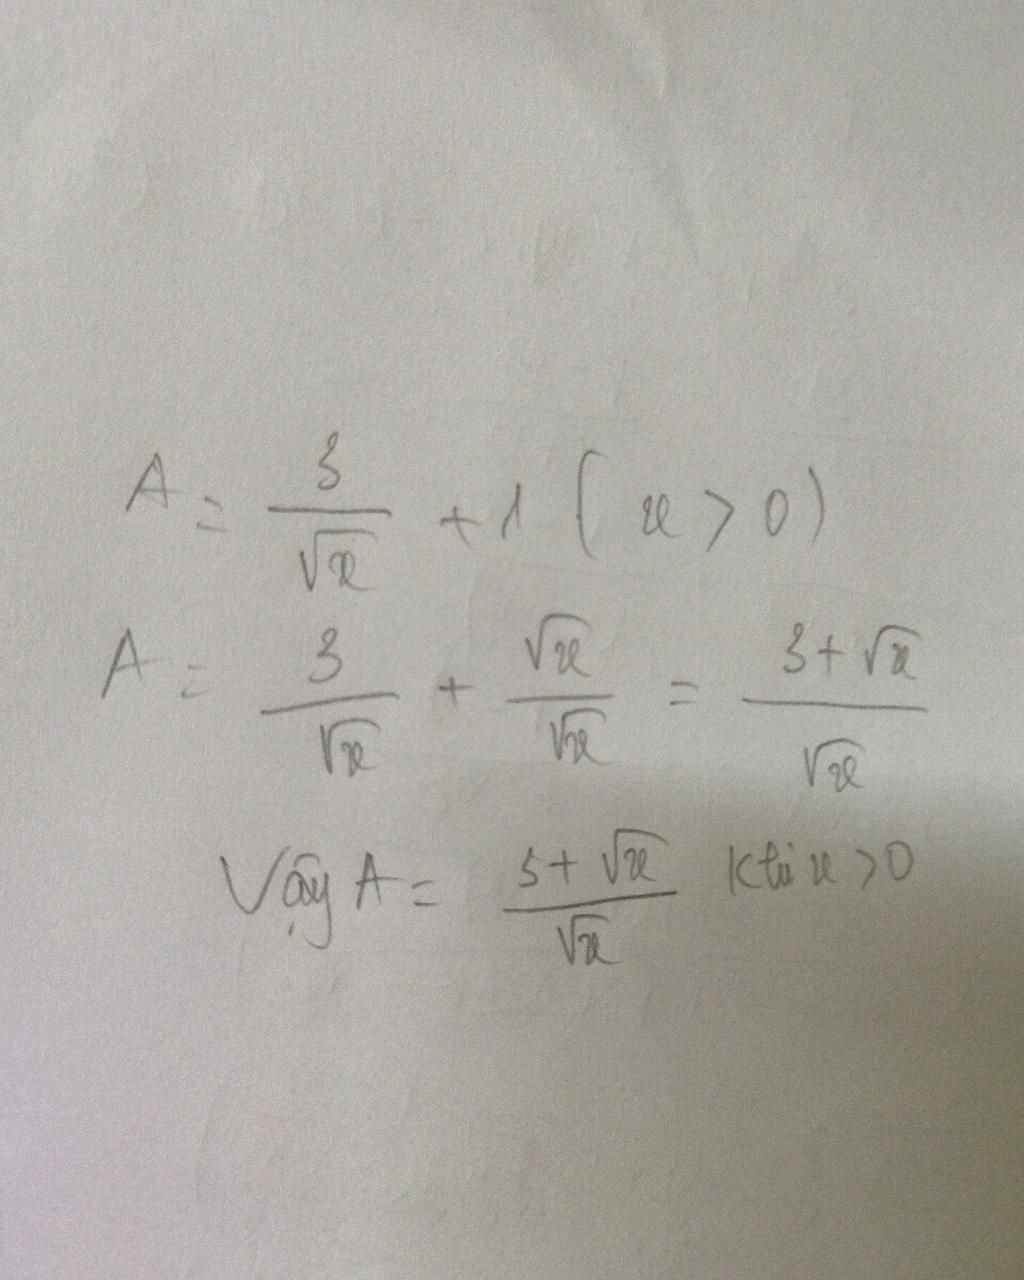 A = 3/√x + 1 (x > 0)
A = 3/√x + √x/√x = (3 + √x)/√x
Vậy A = (3 + √x)/√x khi x > 0